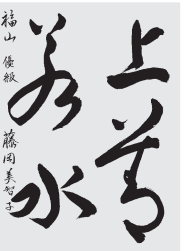 上善
若水
福山 優級 藤岡美智子